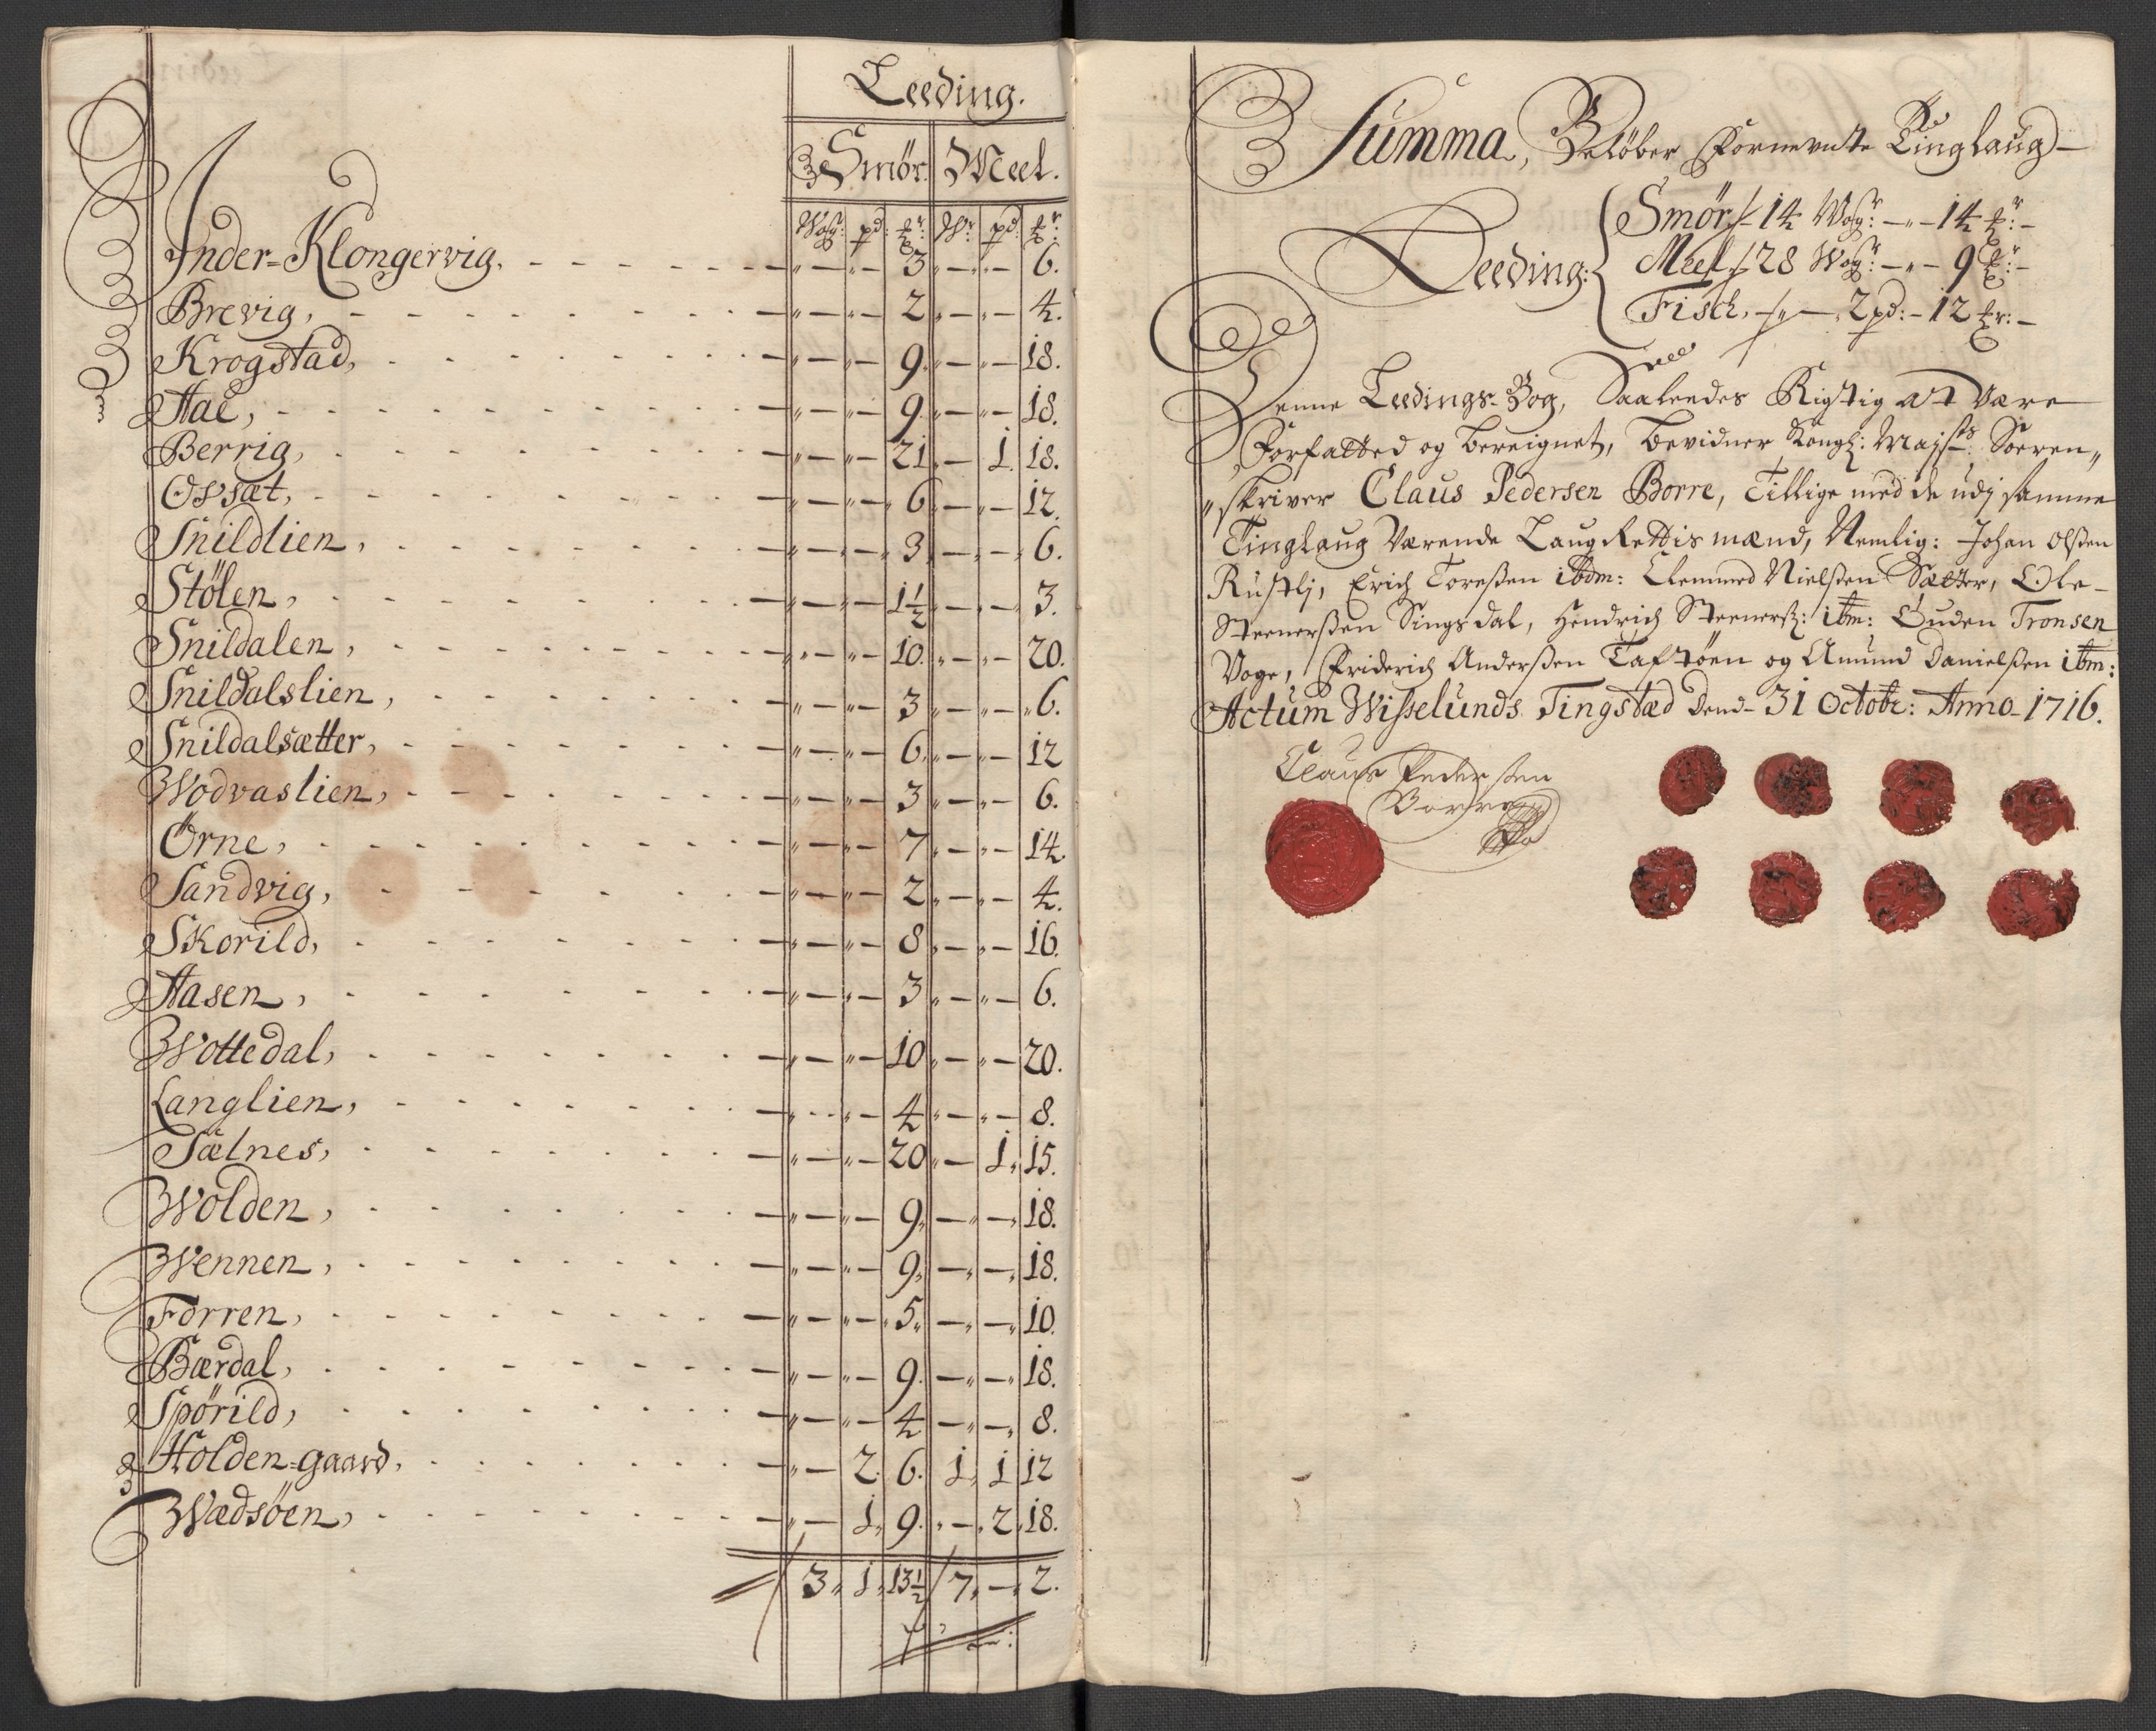 Leeding.
Smör. Meel.
Wog: pd: ℔r: W: pd: ℔r:
Inder-Klongervig. - - - " - " - 3 " - " - 6.
Brevig, - - - " - " - 2 " - " - 4.
Krogstad, - - - " - " - 9. " - " - 18.
Aae, - - - " - " - 9. " - " - 18.
Berrig, - - - " - " - 21. " - 1. 18.
Ossæt, - - - " - " - 6 " - " - 12.
Snildlien, - - - " - " - 3 " - " - 6.
Stölen, - - - " - " - 1½ " - " - 3.
Snildalen, - - - " - " - 10. " - " - 20.
Snildalslien, - - - " - " - 3 " - " - 6.
Snildalsætter, - - - " - " - 6. " - " - 12
Wodvaslien, - - - " - " - 3 " - " - 6.
Örne, - - - " - " - 7 " - " - 14.
Sandvig, - - - " - " - 2 " - " - 4.
Skorild, - - - " - " - 8 " - " - 16.
Aasen, - - - " - " - 3 " - " - 6.
Wottedal, - - - " - " - 10 " - " - 20.
Langlien, - - - " - " - 4 " - " - 8.
Sælnes, - - - " - " - 20 " - 1, 15.
Wolden, - - - " - " - 9, " - " - 18.
Wennen, - - - " - " - 9, " - " - 18.
Forren, - - - " - " - 5, " - " - 10.
Bærdal, - - - " - " - 9. " - " - 18.
Spörild, - - - " - " - 4 " - " - 8.
Holden-gaard. - - - " - 2. 6. 1, 1 12
Wædsöen, - - - " - 1, 9. " - 2, 18.
3, 1, 13½ 7, - 2.
Summa, Belöber Fornevnte Tinglaug-
Smör - 14 Wog: - " - 14 ℔r: -
Leeding: Meel - 28 Wog: - " - 9 ℔r: -
Fisch, - " - 2 pd: - 12 ℔r: -
Denne Leedings-Bog, Saaleedes Rigtig at være
Forfatted og bereignet, bevidner Kongl: Mayst: Soeren„
„skriver Claus Pedersen Borre, Tillige med de udj samme
Tinglaug Værende Laug Rettis mænd, Nemlig: Johan Olßen
Rustlj, Erich Toreßen ibdm: Clemmed Nielßen Sætter, Ole-
Steenerßen Singsdal, Hendrich Steenerß: ibm: Ouden Tronsen
Voge, Friderich Anderßen Taftöen og Amund Danielßen ibm:
Actum Wisselunds Tingstæd Dend- 31 Octobr: Anno- 1716.
Claus Pederßen
Borre